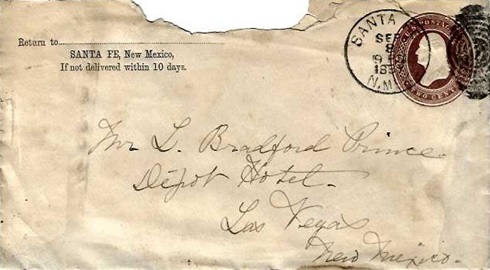 Return to
SANTA FE, New Mexico,
If not delivered within 10 days.
SANTA
SEP
8
N.M.
TWO CENTS
Mr L. Bradford Prince.
Dépot Hotel.
Las Vegas
New Mexico.